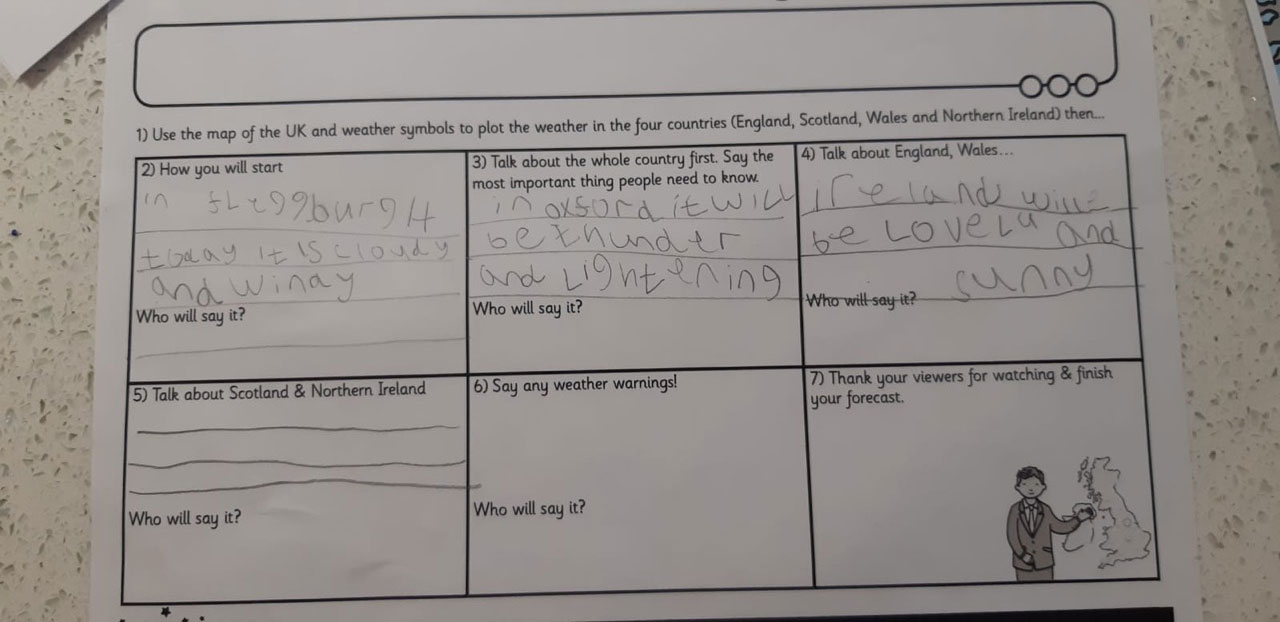 1) Use the map of the UK and weather symbols to plot the weather in the four countries (England, Scotland, Wales and Northern Ireland) then...
2) How you will start
in
today it is cloudy
and winay
Who will say it?
3) Talk about the whole country first. Say the
most important thing people need to know.
in oxford it will
be thunder
and Lightening
Who will say it?
4) Talk about England, Wales...
Ireland will
be Lovely and
sunny
Who will say it?
5) Talk about Scotland & Northern Ireland
Who will say it?
6) Say any weather warnings!
Who will say it?
7) Thank your viewers for watching & finish
your forecast.